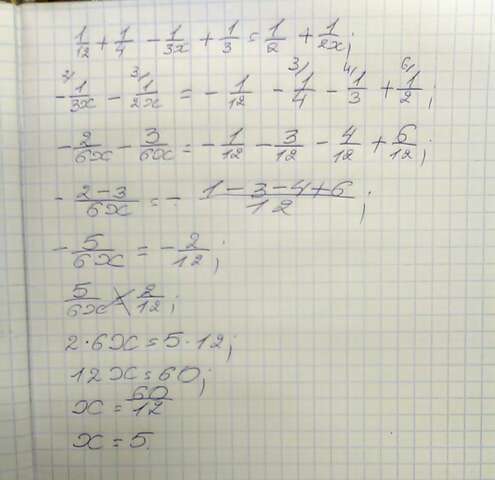 1/12 + 1/4 - 1/3x + 1/3 = 1/2 + 1/2x;
- 2/ 1/3x - 3/ 1/2x = - 1/12 - 3/ 1/4 - 4/ 1/3 + 6/ 1/2;
- 2/6x - 3/6x = - 1/12 - 3/12 - 4/12 + 6/12;
- 2-3/6x = - 1-3-4+6/12;
- 5/6x = - 2/12;
5/6x = 2/12;
2·6x = 5·12;
12x = 60;
x = 60/12
x = 5.